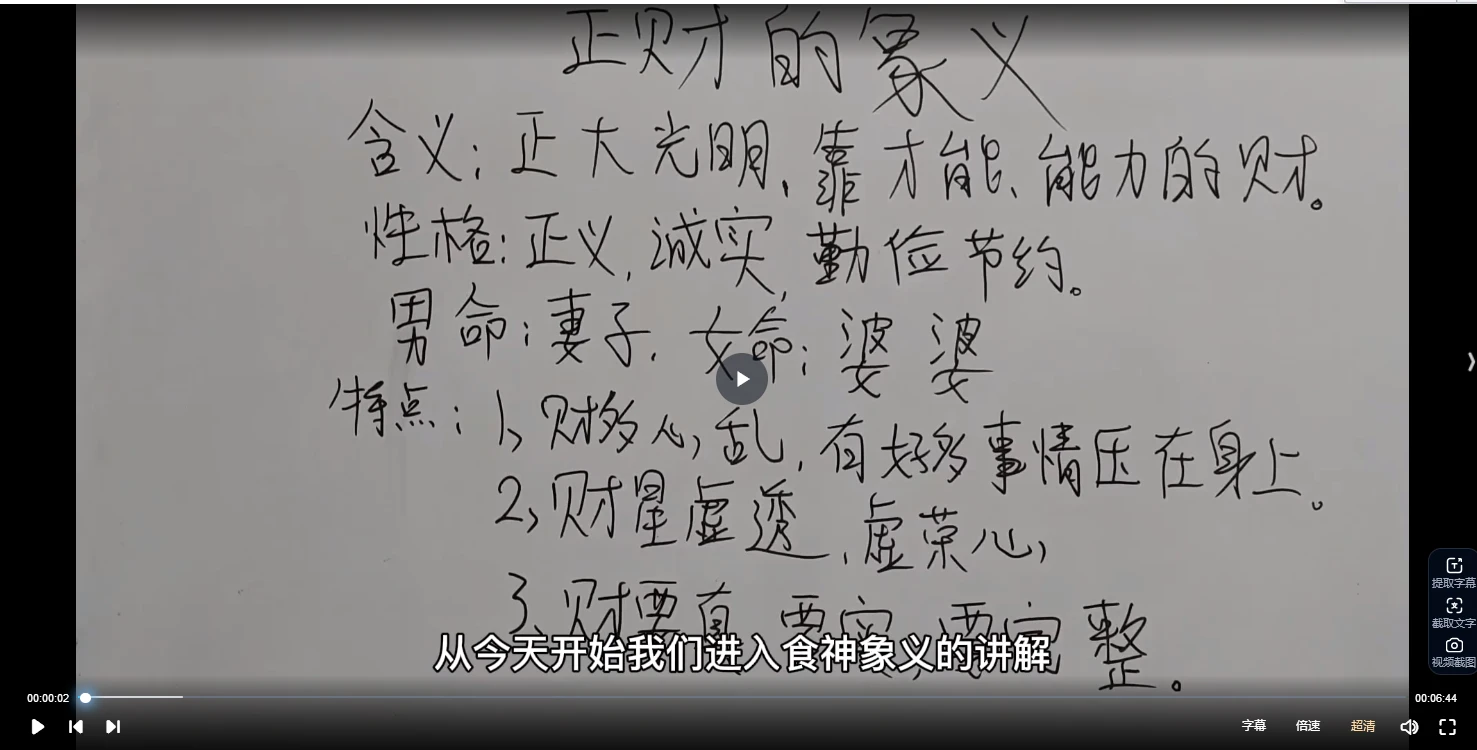 正财的象义
含义：正大光明、靠才能、能力的财。
性格：正义，诚实，勤俭节约。
男命：妻子．女命：婆婆
特点：1、财多心乱，有好多事情压在身上。
2、财星虚透，虚荣心，
3、财要真，要实，要完整。
从今天开始我们进入食神象义的讲解
提取字幕
截取文字
视频截图
00:00:02
00:06:44
字幕 倍速 超清